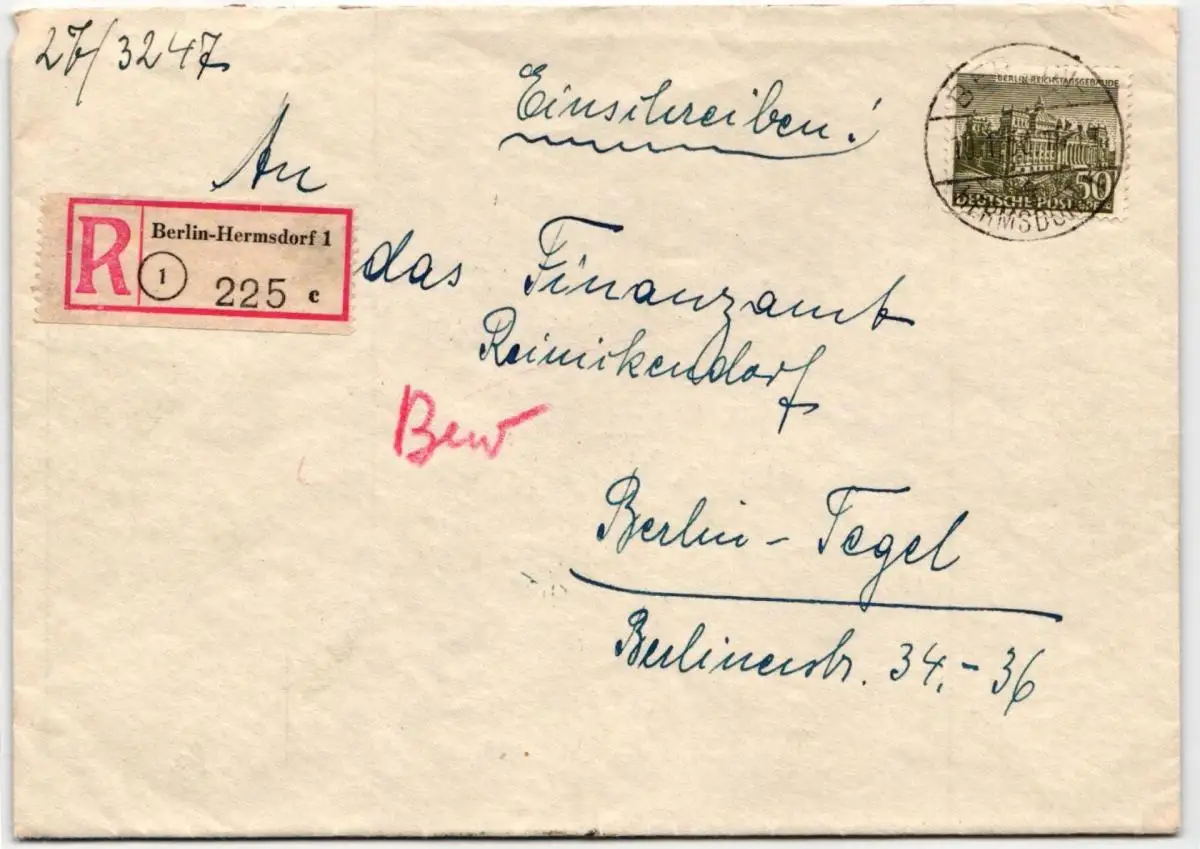 27/3247
Einschreiben!
BERLIN-REICHSTAGSGEBÄUDE
50
DEUTSCHE POST
HERMSDORF
An
R Berlin-Hermsdorf 1
1 225 c
das Finanzamt
Reinikendorf
Bew
Berlin-Tegel
Berlinerstr. 34.-36